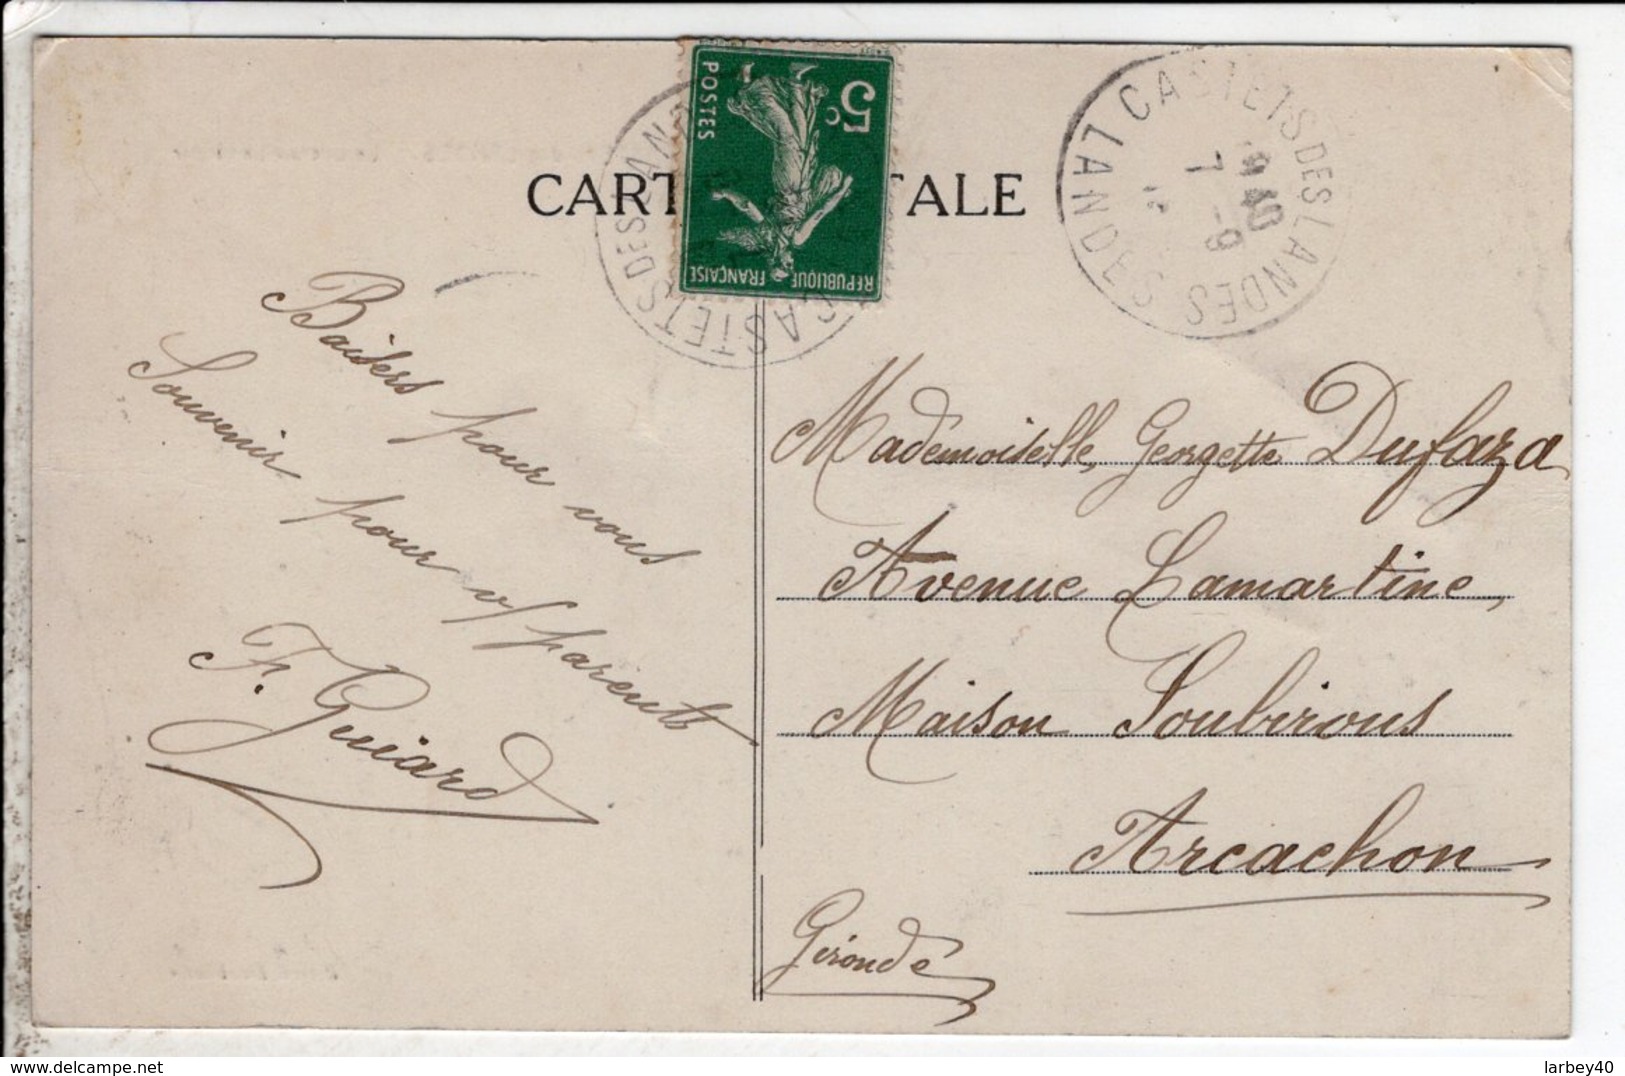 CARTE POSTALE
5c
POSTES
REPUBLIQUE FRANÇAISE
CASTETS DES LANDES
CASTETS DES LANDES
LANDES
9 40
7 - 9
Baisers pour vous
Souvenir pour v/ parents
F. Guiard
Mademoiselle Georgette Dufaza
Avenue Lamartine,
Maison Soubirous
Arcachon
Gironde
larbey40